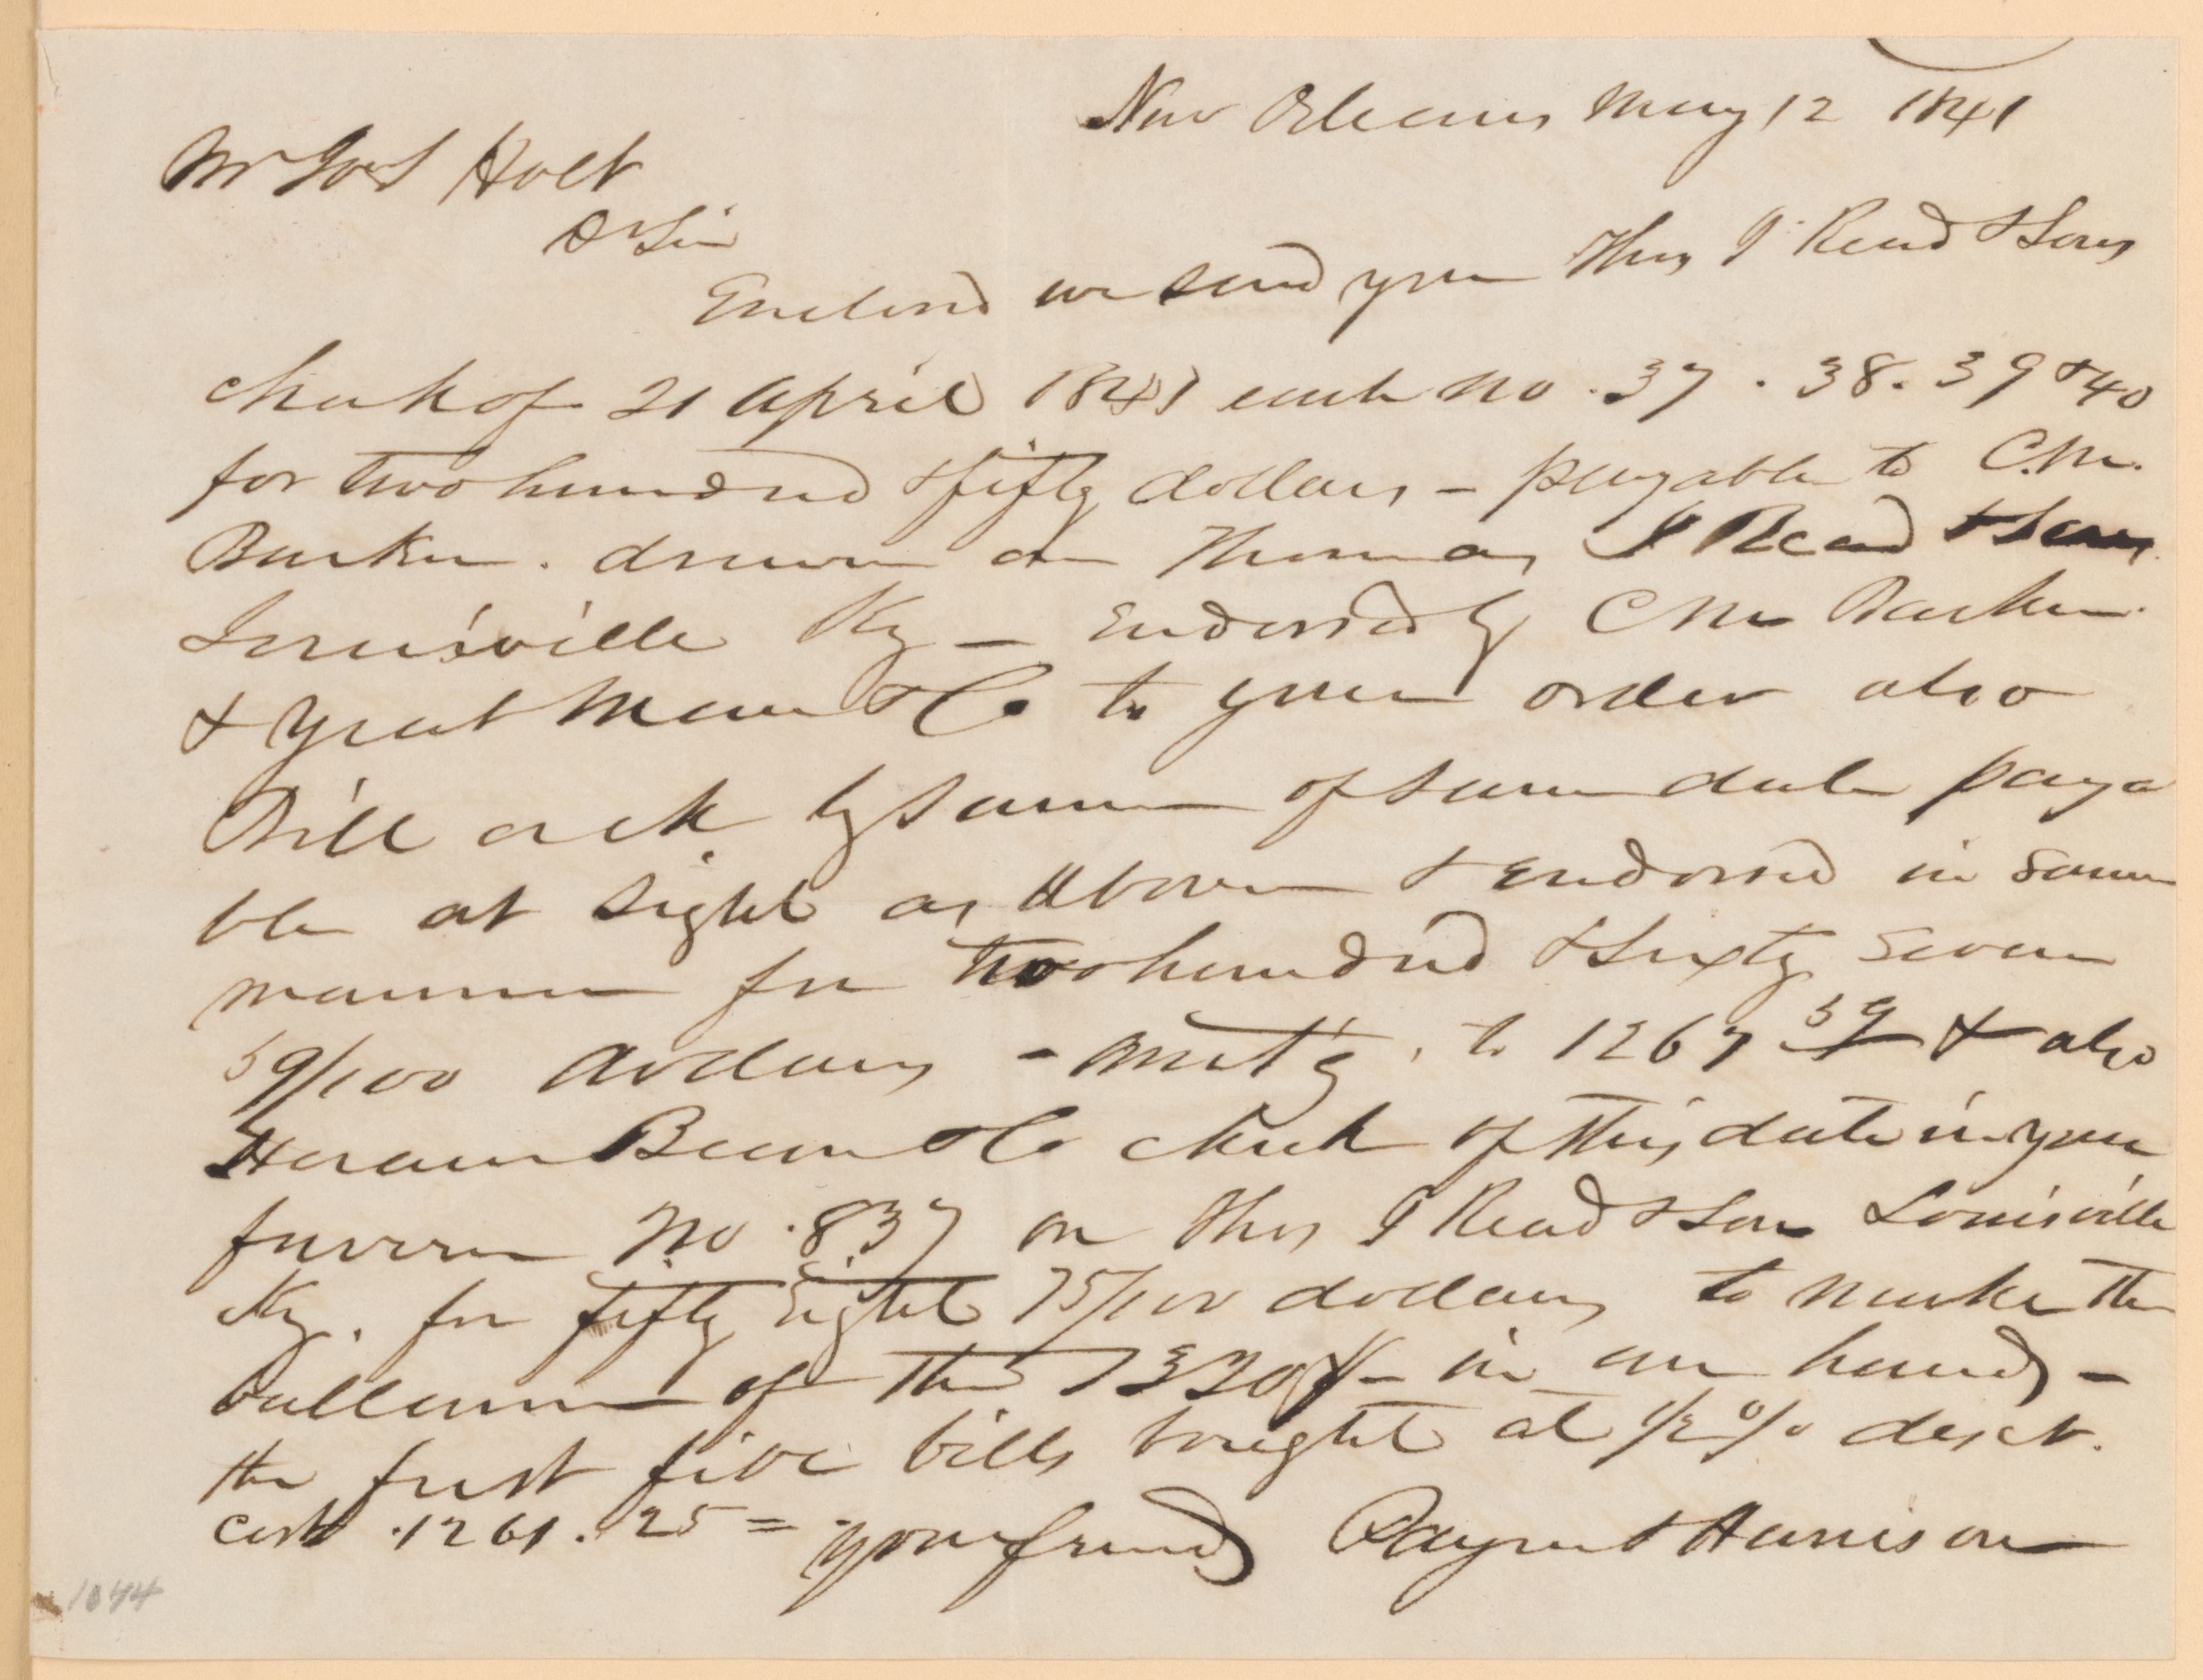 New Orleans May 12 1841
Mr Jos Holt
Dr Sir
Enclosed we send you Thos J Read & Sons
check of 21 April 1841 each no. 37. 38. 39 & 40
for two hundred & fifty dollars - payable to C.M.
Barker. drawn on Thomas J Read & Son
Louisville Ky - Endorsed by C M Barker
& & Co to your order also
Bill or ck by same of same date paya
ble at sight as above & endorsed in same
manner for two hundred & Sixty Seven
59/100 dollars - to 1267 59 & also
Bean & Co check of this date in your
favour No. 837 on Thos J Read & Son Louisville
Ky. for fifty Eight 75/100 dollars to make the
ballance of the 1320 in our hands -
the first five bills bought at 1/2 % disct.
cost 1261. 25 = your friends Payne & Harrison
1044